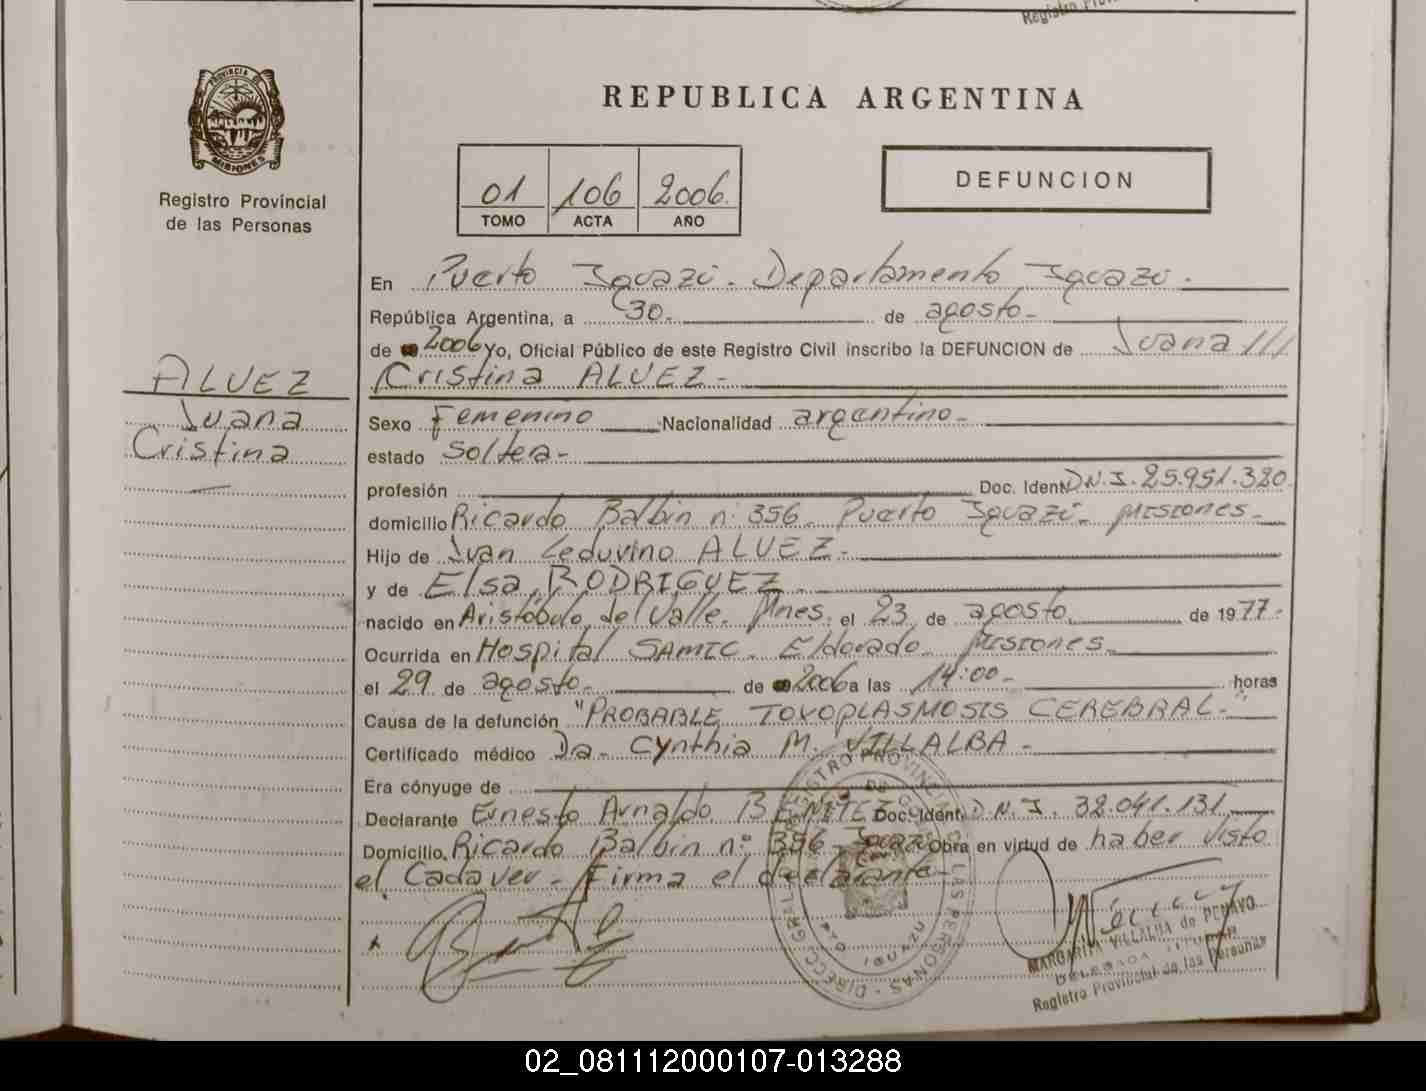 Registro Pro
PROVINCIA DE
MISIONES
Registro Provincial
de las Personas
REPUBLICA ARGENTINA
01 106 2006.
TOMO ACTA AÑO
DEFUNCION
En Puerto Iguazú. Departamento Iguazú.
República Argentina, a 30.- de agosto.-
de 2006 Yo, Oficial Público de este Registro Civil inscribo la DEFUNCION de Juana ///
Cristina ALVEZ.-
ALVEZ
Juana
Cristina
Sexo Femenino Nacionalidad argentino.-
estado Soltera-
profesión Doc. Ident. D.N.I. 25.951.320.
domicilio Ricardo Balbin n: 356. Puerto Iguazú. Misiones.-
Hijo de Juan Leduvino ALVEZ.-
y de Elsa RODRIGUEZ.
nacido en Aristóbulo del Valle. Mnes. el 23 de agosto. de 1977.-
Ocurrida en Hospital SAMIC. Eldorado. Misiones.
el 29 de agosto.- de 2006 a las 14:00.- horas
Causa de la defunción "PROBABLE TOXOPLASMOSIS CEREBRAL.-"
Certificado médico Da. Cynthia M. VILLALBA.-
Era cónyuge de
Declarante Ernesto Arnaldo BENITEZ Doc. Ident. D.N.I. 38.041.131.
Domicilio. Ricardo Balbin n: 356 - Iguazú Obra en virtud de haber visto
el Cadaver.- Firma el declarante-
DIRECC. GRAL. REGISTRO PROVINCIAL DE LAS PERSONAS
IGUAZU
MARGARITA VILLALBA de PENAYO
DELEGADA TITULAR
Registro Provincial de las Personas
02_081112000107-013288